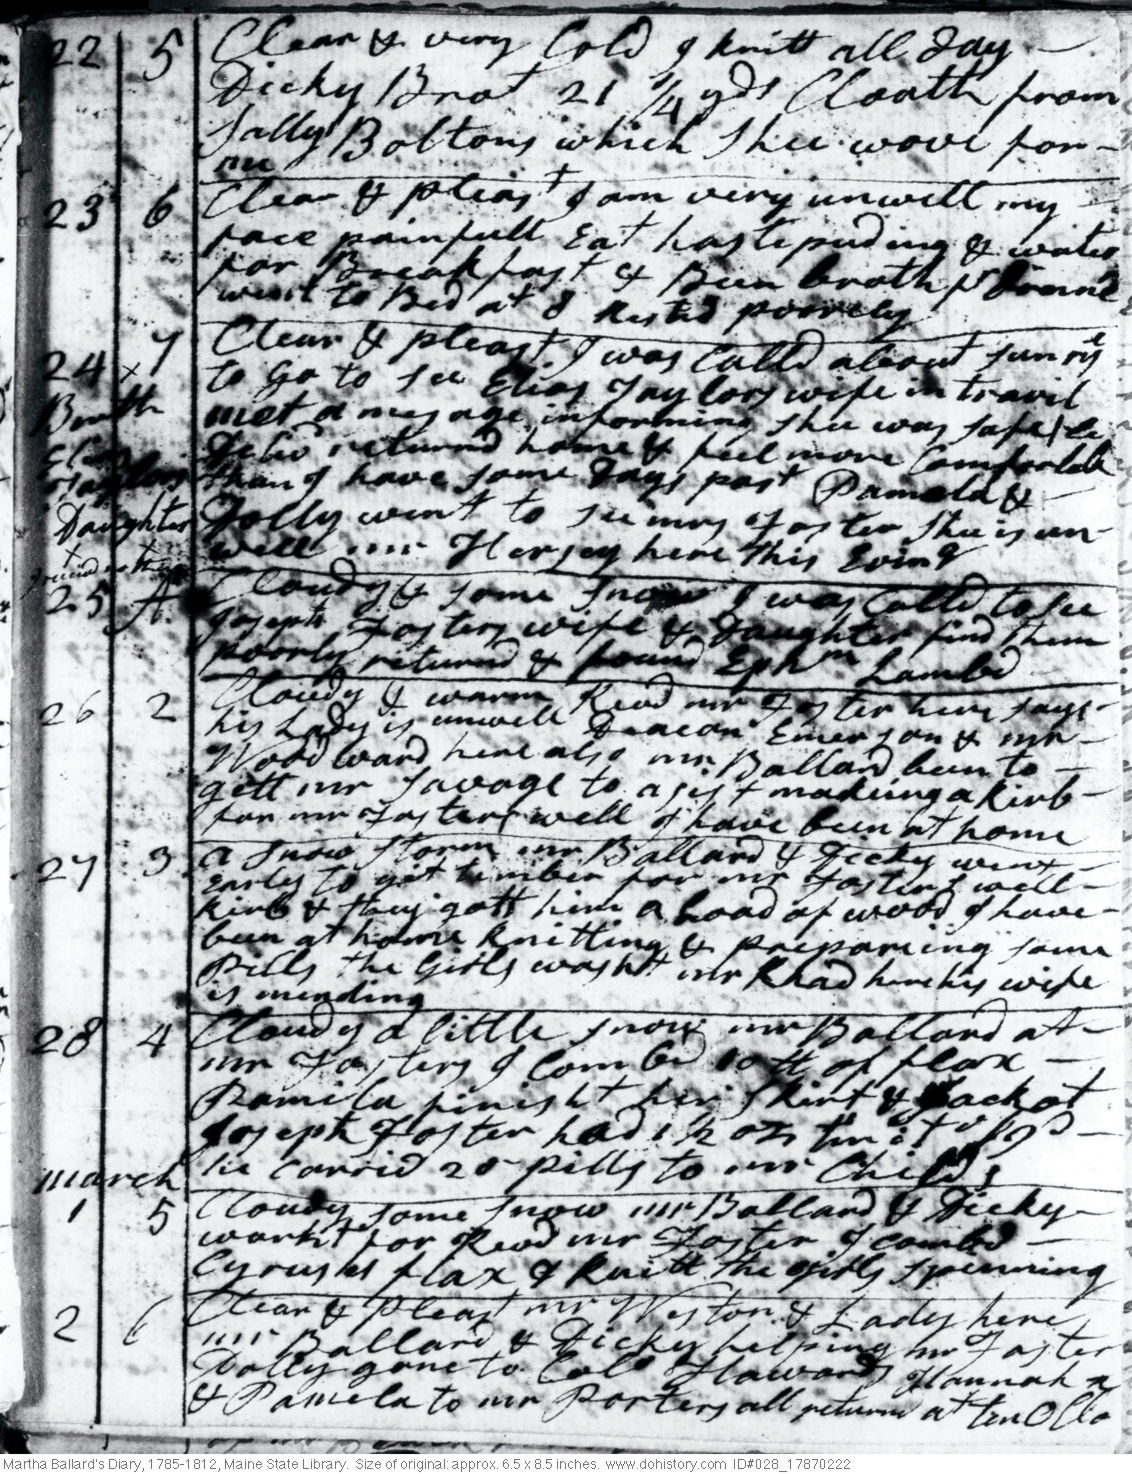 22 5 Clear & very Cold I knitt all Day
Dicky Brot 21 1/4 yds Cloath from
Sally Boltons which Shee wove for
me
23 6 Clear & pleast I am very unwell my
face painfull Eat hasty puding & water
for Breakfast & Been broath for
went to Bed at 8 Rested poorely
24 x 7 Clear & pleast I was Calld about sun ris
to Go to see Elias Taylors wife in travil
Birth met a mesage informing Shee was safe
Elias returnd home & feel more Comfortable
Taylors than I have some Days past Pamela &
Daughter Dolly went to see mrs Foster Shee is un
well mr Hersey here this Evng
25 A Cloudy & some Snow I was Calld to see
Joseph Fosters wife & Daughter find them
poorly returnd & found Ephm Lambd
26 2 Cloudy & warm Revd mr Foster here says
his Lady is unwell Deacon Emerson & mr
Woodward here also mr Ballard been to
gett mr Savage to asist makeing a kirb
for mr Fosters well I have been at home
27 3 a Snow Storm mr Ballard & Dicky went
Early to get timber for mr Fosters well
kirb & they gott him a load of wood I have
been at home knitting & prepareing some
Pills the Girls washt mr Khad here his wife
is mending
28 4 Cloudy a little snow mr Ballard at
mr Fosters I Combd 10 lb of flax
Pamila finisht her Skirt & Jackot
Joseph Foster had 1 1/2 ozs
he carrid 20 pills to mr Childs
march
1 5 Cloudy some snow mr Ballard & Dicky
workt for Revd mr Foster I combd
Cyrus's flax & knitt the girls spinning
2 6 Clear & Pleast mr Weston & Lady here
mr Ballard & Dicky helping mr Foster
Dolly gone to Coll Howards Hannah
& Pamela to mr Porters all returnd at ten O Clo
Martha Ballard's Diary, 1785-1812, Maine State Library. Size of original: approx. 6.5 x 8.5 inches. www.dohistory.com ID#028_17870222